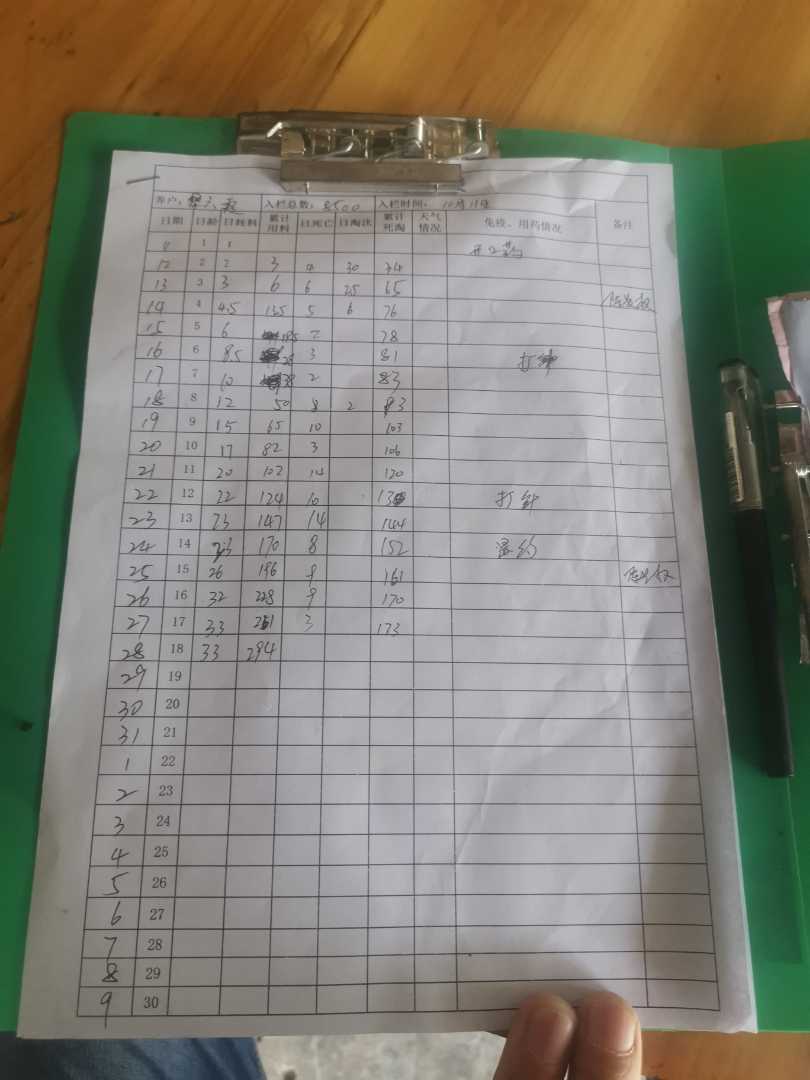 养户： 入栏总数：8500 入栏时间：10月11日
日期 日龄 日耗料 累计用料 日死亡 日淘汰 累计死淘 天气情况 免疫、用药情况 备注
11 1 1 开口药
12 2 2 3 4 30 34
13 3 3 6 6 25 65
14 4 4.5 13.5 5 6 76
15 5 6 19.5 2 78
16 6 8.5 28 3 81 打针
17 7 10 38 2 83
18 8 12 50 8 2 93
19 9 15 65 10 103
20 10 17 82 3 106
21 11 20 102 14 120
22 12 22 124 10 130 打针
23 13 23 147 14 144
24 14 23 170 8 152
25 15 26 196 9 161
26 16 32 228 9 170
27 17 33 261 3 173
28 18 33 294
29 19
30 20
31 21
1 22
2 23
3 24
4 25
5 26
6 27
7 28
8 29
9 30